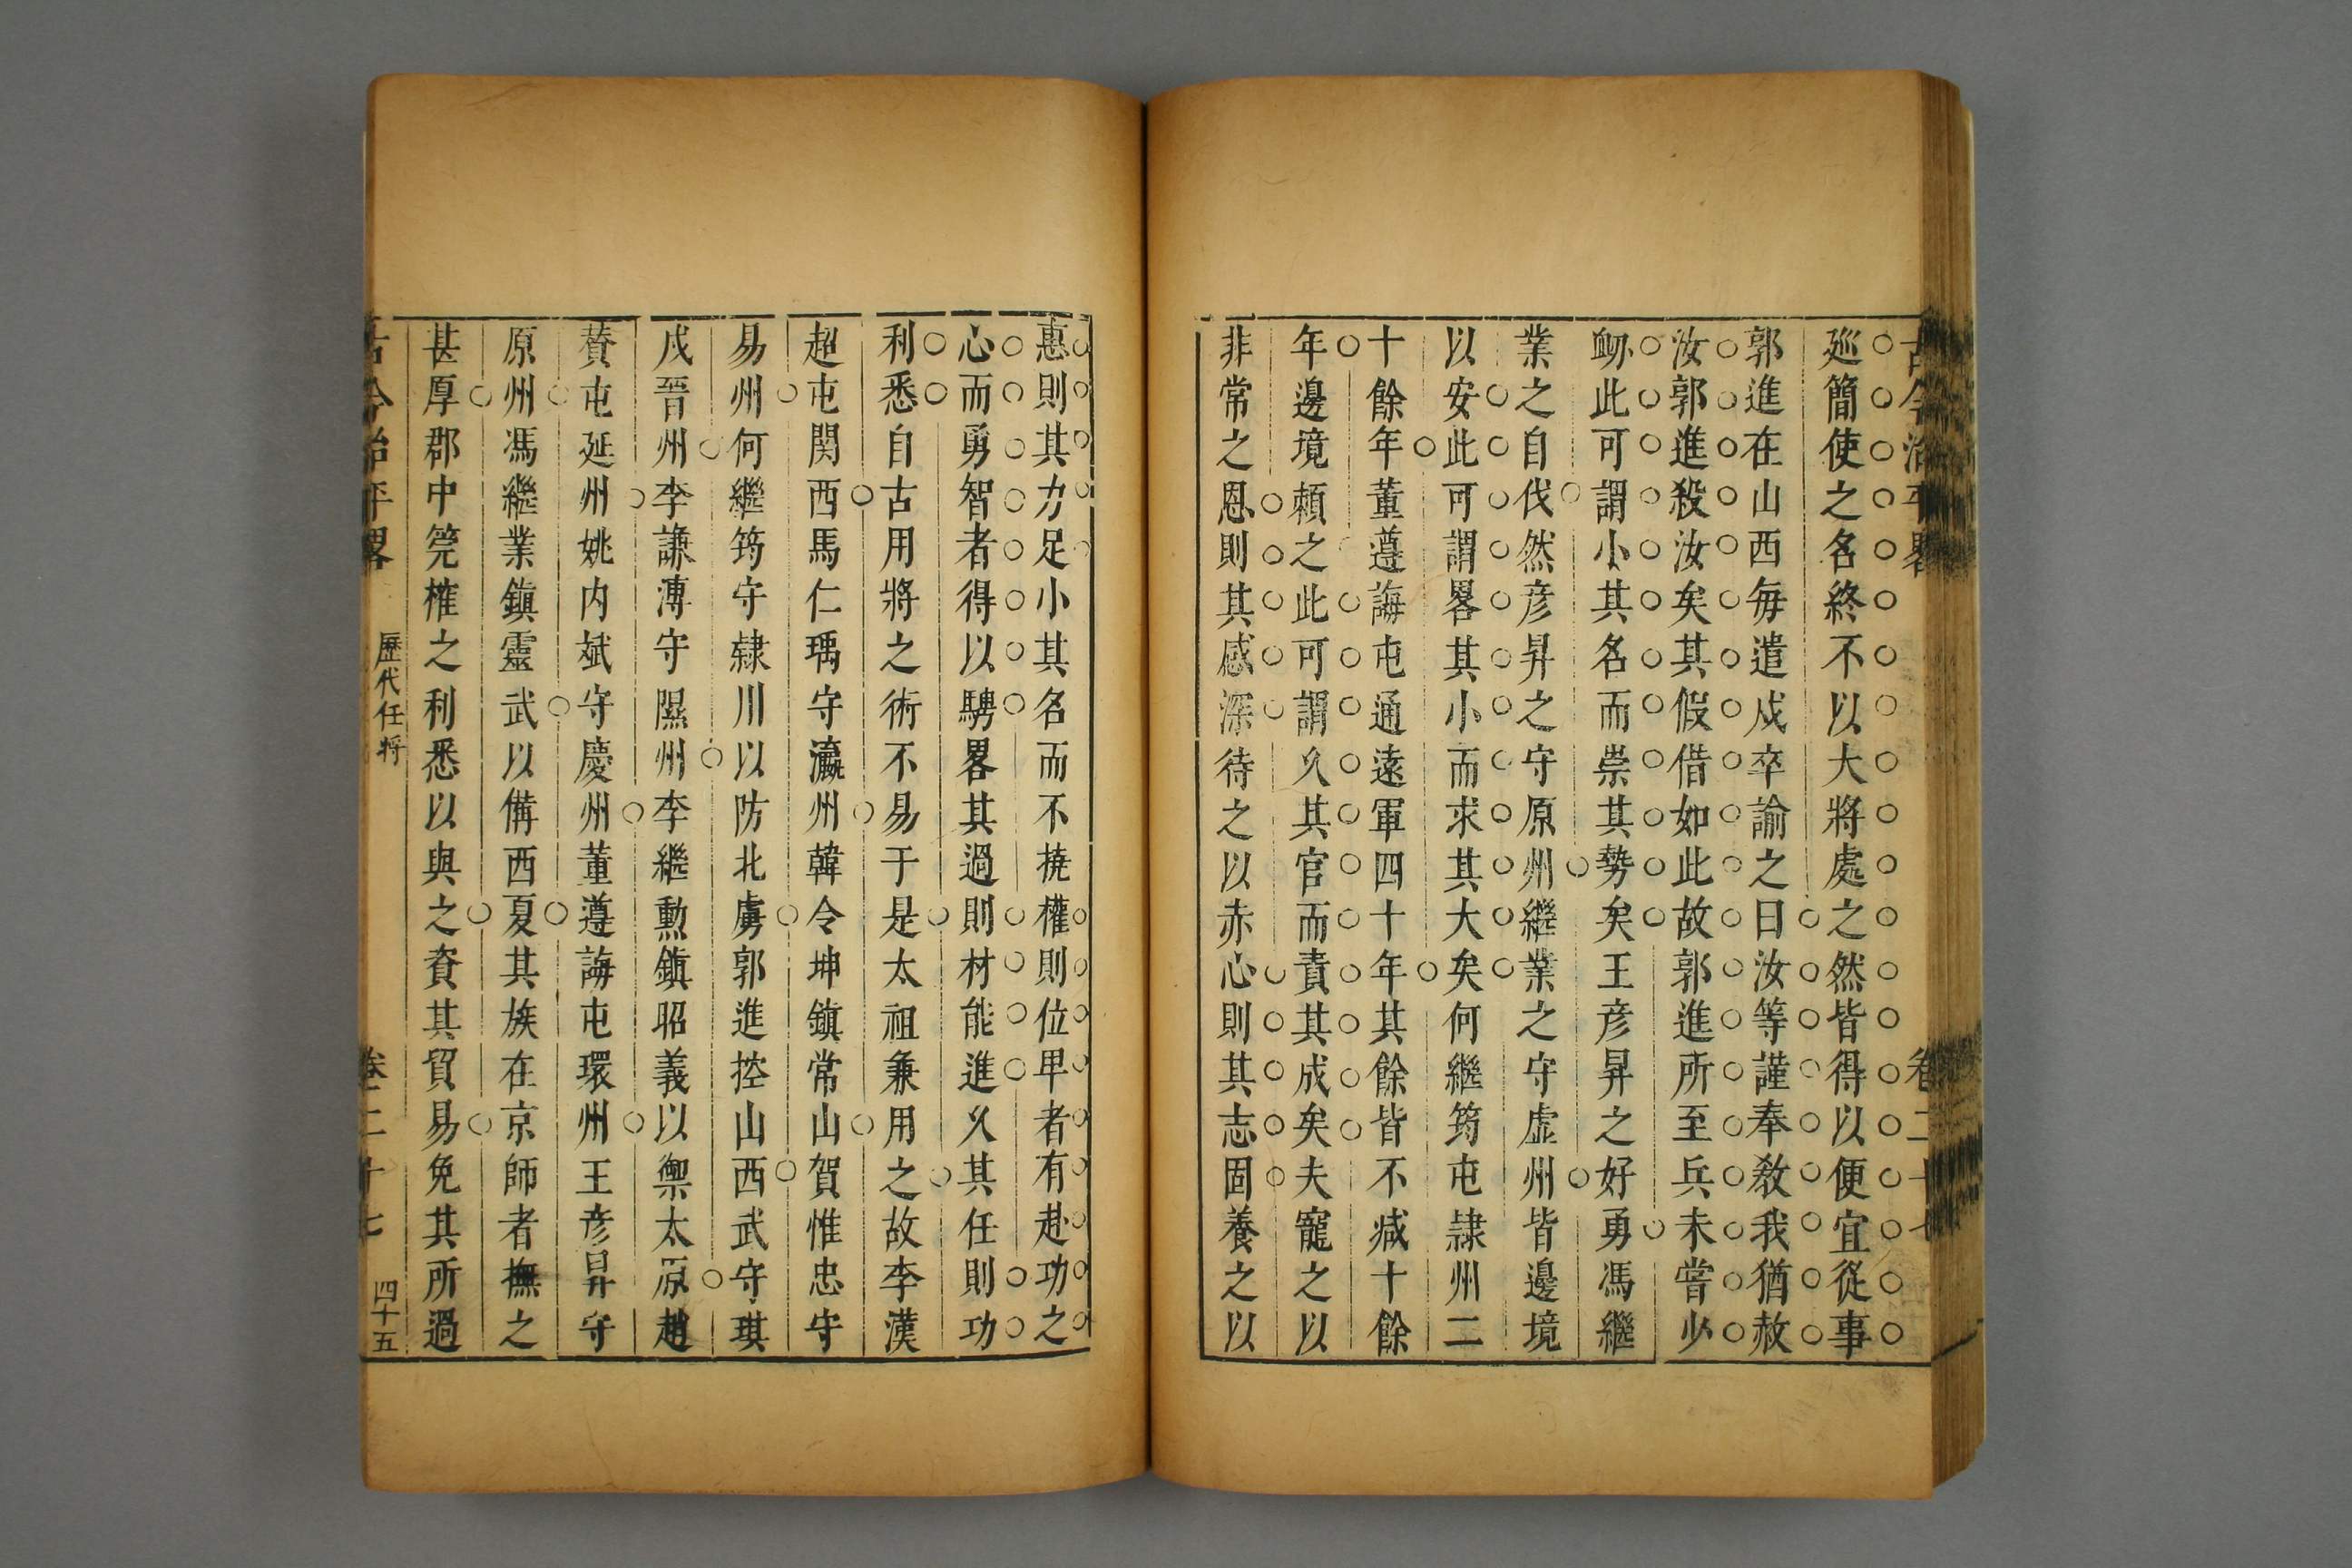 古今治平畧
卷二十七
廵簡使之名終不以大將處之然皆得以便宜從事
郭進在山西每遣戍卒諭之曰汝等謹奉敎我猶赦
汝郭進殺汝矣其假借如此故郭進所至兵未嘗少
衂此可謂小其名而崇其勢矣王彦昇之好勇馮繼
業之自伐然彦昇之守原州繼業之守虚州皆邊境
以安此可謂畧其小而求其大矣何繼筠屯隷州二
十餘年董遵誨屯通遠軍四十年其餘皆不减十餘
年邊境頼之此可謂久其官而責其成矣夫寵之以
非常之恩則其感深待之以赤心則其志固養之以
惠則其力足小其名而不撓權則位甲者有赴功之
心而勇智者得以騁畧其過則材能進久其任則功
利悉自古用將之術不易于是太祖兼用之故李漢
超屯関西馬仁瑀守瀛州韓令坤鎭常山賀惟忠守
易州何繼筠守隷川以防北虜郭進控山西武守琪
戍晉州李謙溥守隰州李繼勲鎭昭義以禦太原趙
賛屯延州姚内斌守慶州董遵誨屯環州王彦昇守
原州馮繼業鎭靈武以備西夏其族在京師者撫之
甚厚郡中筦榷之利悉以與之資其貿易免其所過
古今治平畧
歷代任將
卷二十七
四十五